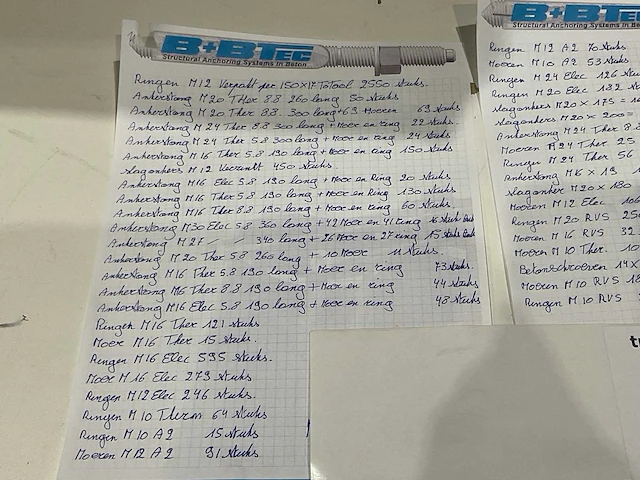 B+BTec
Structural Anchoring Systems in Beton
Ringen M12 Verpakt per 150x17 Totaal 2550 stuks.
Ankerstang M20 Ther 8.8 260 lang 50 stuks
Ankerstang M20 Ther 8.8. 300 lang + 63 Moeren 63 stuks
Ankerstang M24 Ther 8.8 300 lang + Moer en ring 22 stuks.
Ankerstang M24 Ther 5.8 300 lang + Moer en ring 24 stuks
Ankerstang M16 Ther 5.8 190 lang + Moer en ring 150 stuks
slagankers M12 Verzinkt 450 stuks.
Ankerstang M16 Elec 5.8 190 lang + Moer en Ring 20 stuks
Ankerstang M16 Ther 5.8 190 lang + Moer en Ring 130 stuks
Ankerstang M16 Ther 8.8 190 lang + Moer en ring 60 stuks.
Ankerstang M30 Elec 5.8 360 lang + 42 Moer en 41 ring 16 stuks
Ankerstang M27 - - 340 lang + 26 Moer en 27 ring 15 stuks
Ankerstang M20 Ther 5.8 260 lang + 10 Moer 11 stuks.
Ankerstang M16 Ther 5.8 190 lang + Moer en ring 73 stuks.
Ankerstang M16 Ther 8.8 190 lang + Moer en ring 44 stuks
Ankerstang M16 Elec 5.8 190 lang + Moer en ring 48 stuks
Ringen M16 Ther 121 stuks
Moer M16 Ther 15 stuks.
Ringen M16 Elec 595 stuks.
Moer M16 Elec 279 stuks
Ringen M12 Elec 246 stuks.
Ringen M10 Therm 64 stuks
Ringen M10 A2 15 stuks
Moeren M12 A2 91 stuks
B+BTec
Structural Anchoring Systems in Beton
Ringen M12 A2 70 stuks
Moeren M10 A2 53 stuks
Ringen M24 Elec 126 stu
Ringen M20 Elec 182 st
slagankers M20 x 175 =
slagankers M20 x 200 =
Ankerstang M24 Ther 8.
Moeren M24 Ther 25
Ringen M24 Ther 56
Ankerstang M16 x 19
slaganker M20 x 180
Moeren M12 Elec 106
Ringen M20 RVS 25
Moeren M16 RVS 32
Moeren M10 Ther. 10
Betonschroeven 14x
Moeren M10 RVS 18
Ringen M10 RVS